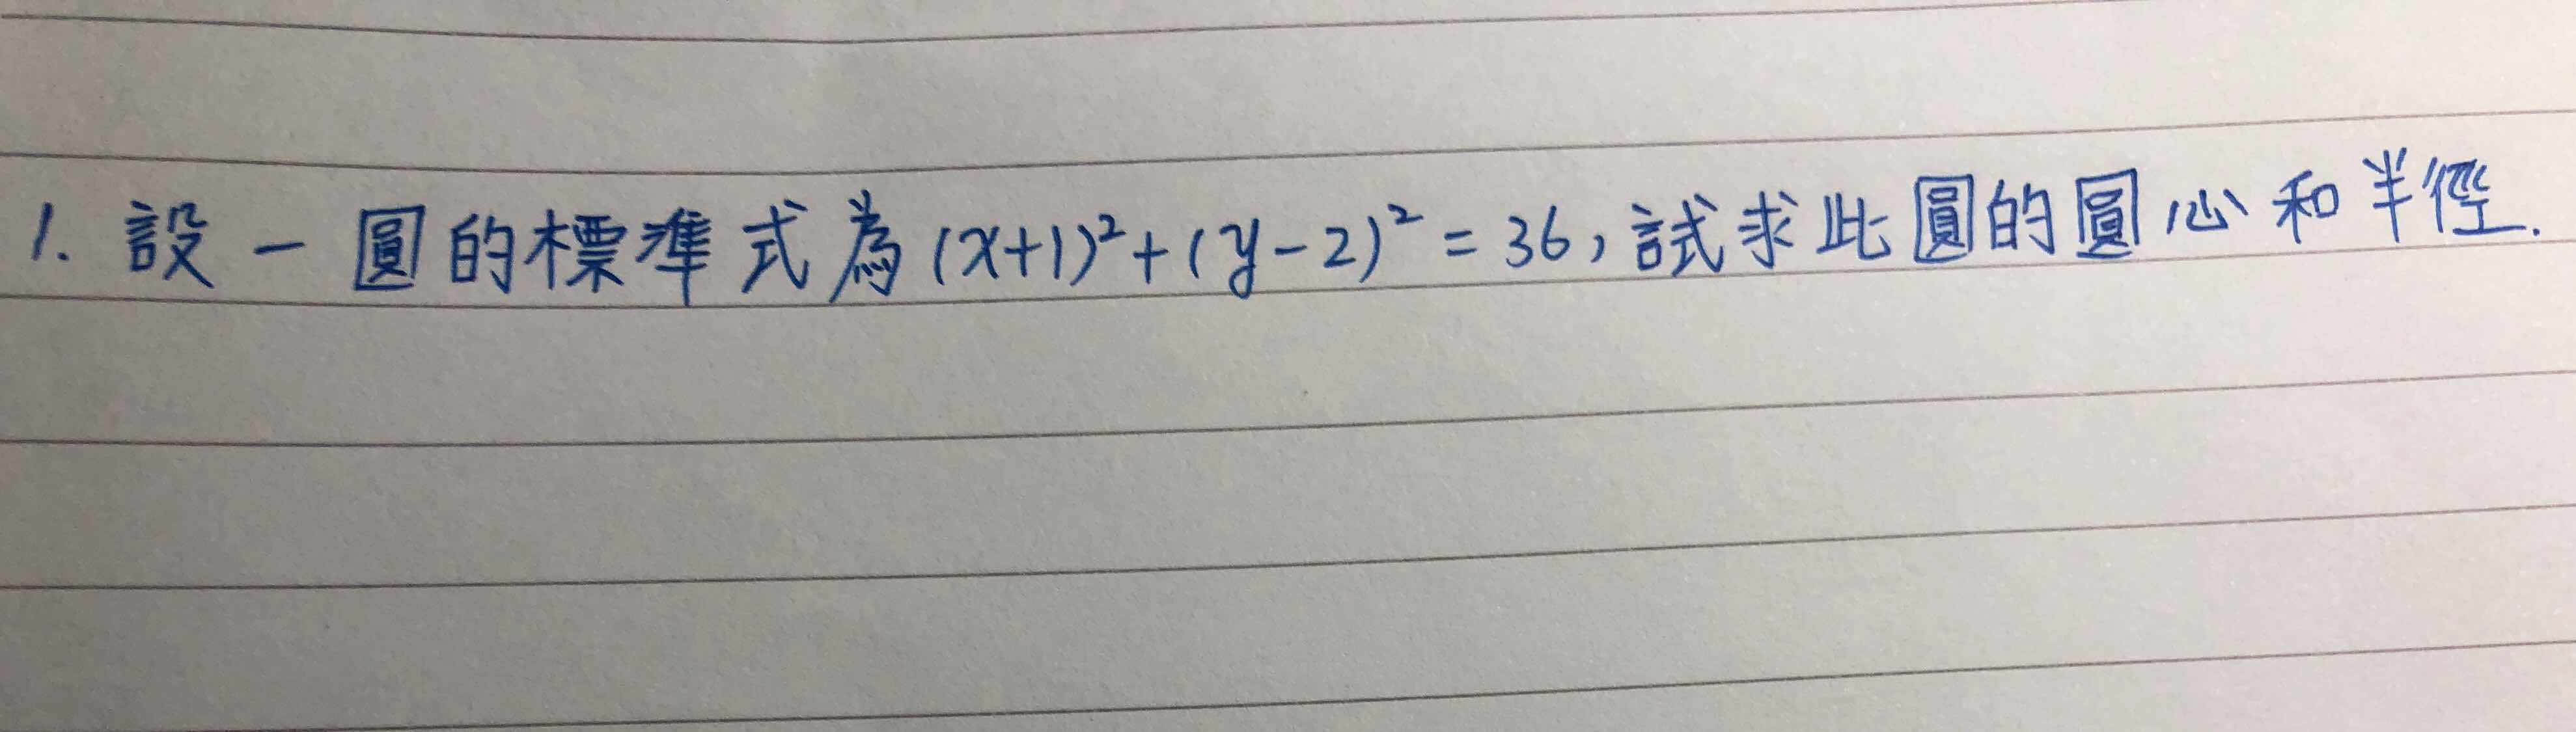 1. 設一圓的標準式為(x+1)²+(y-2)²=36,試求此圓的圓心和半徑.